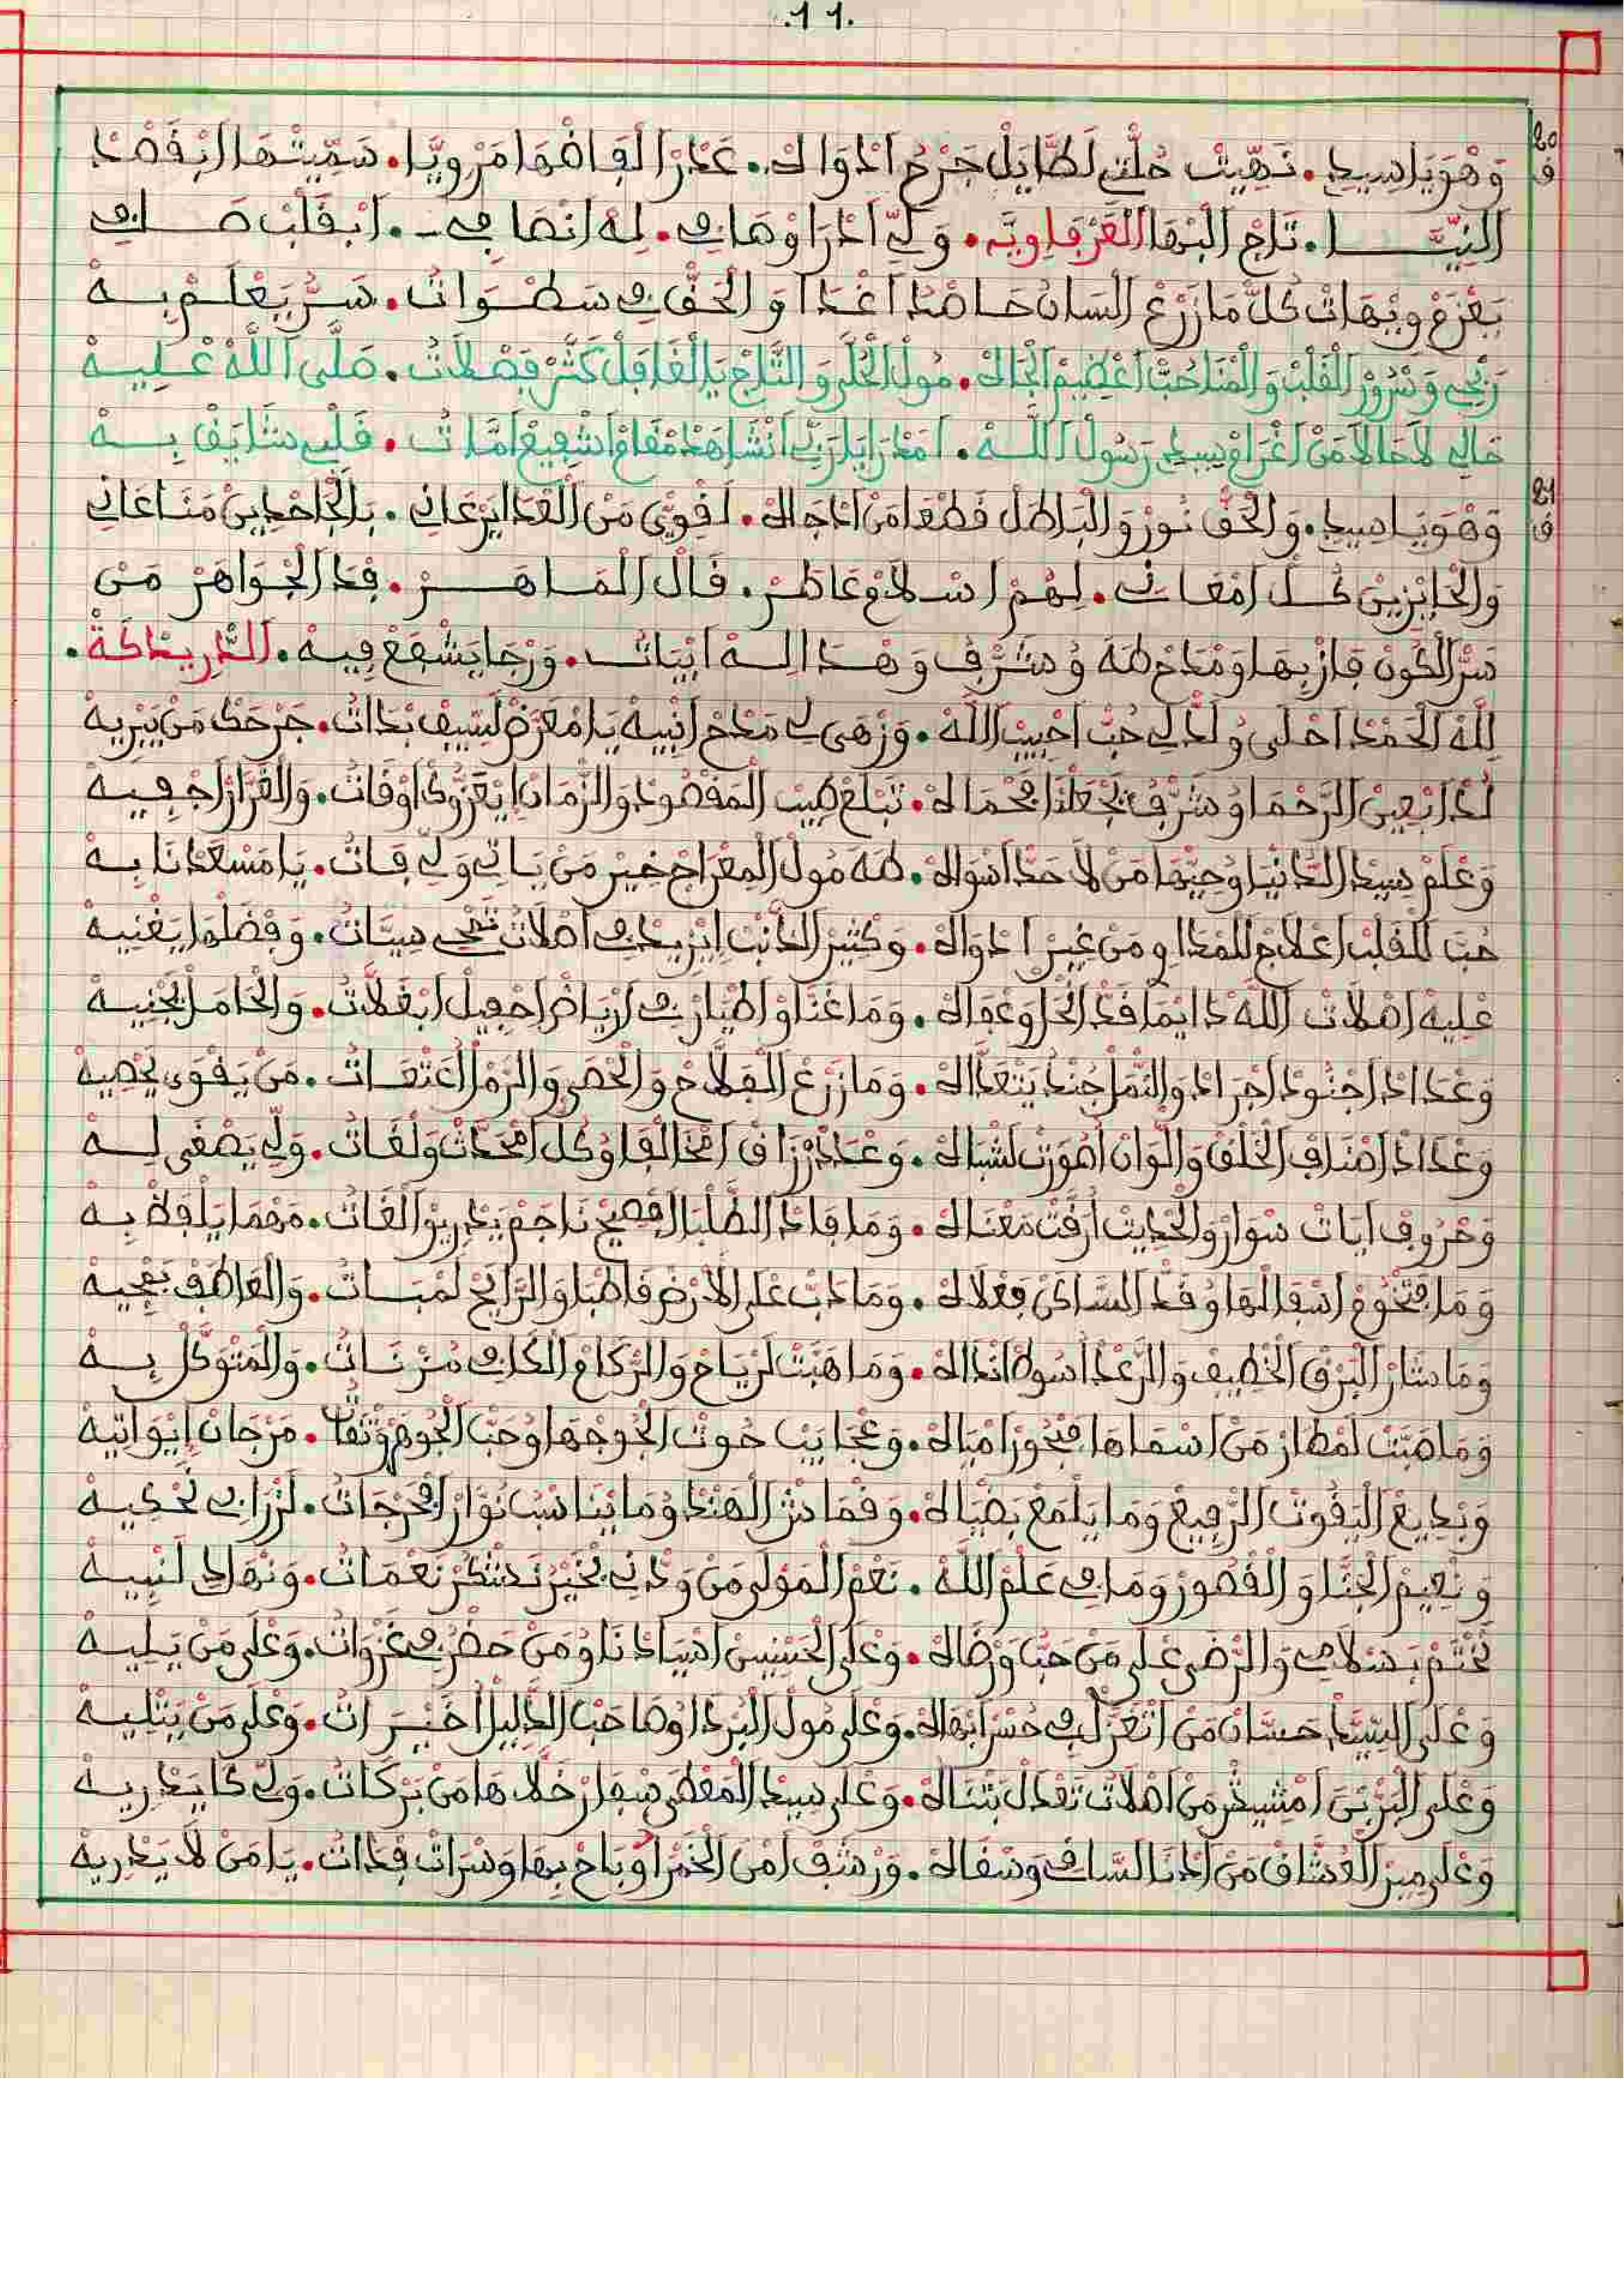 .11.
20
وَهْوَيَا سِيدِي. نَهِّيتْ حُلْتِي لَطَّايَلْ جَرْحُ ادْوَاكْ. عَدْرَا الْفَاضْهَا مَرْوِيَّا. سَمِّيتْهَا ابْقَصْدْ
ف
النِيَّا. تَاجْ الْبْهَا الْعَرْفَاوِيَّه. وَلِّي ادْرَا وْصَافِي. لِهْ انْصَافِي. ابْقَلْبْ صَافِي
كُلّْ مَا زَرْعْ السَانْ حَاصْدُ اغْدَا وَالْحَقّْ فِي سَطْوَاتُ. سَرُّ يَعْلَمْ بِهْ
رَبْحِي وَسْرُورْ الْقَلْبْ وَالْمْنَا حُبّْ اعْظِيمْ الْجَاهْ. مُولْ الْحُلَّى وَالتَّاجْ يَا الْغَافِلْ كَثَّرْ فَضْلَاتُ. صَلَّى اللَّهْ عْلِيهْ
حَالِي لَاحَالَا مَنْ اغْرَامْ سِيدِي رَسُولْ اللَّهْ. امْدَرَا يَا رَبِّي انْشَاهْدْ مْقَامْ اشْفِيعْ امَّاتُ. قَلْبِي شَايَقْ بِهْ
21
وَهْوَيَا سِيدِي. وَالْحَقّْ نُورْ وَالْبَاطَلْ قَطْعَا مَنْ ادْجَاهْ. لَقْوِيّْ مَنْ الْعْدَا يَرْعَانِي. بَالْجَاحْدِينْ مَنَاعَانِي
ف
وَالْحَايْزِينْ كُلّْ امْعَانِي. لِهُمْ اسْلَامْ عَاطَرْ. قَالْ الْمَاهَرْ. فِدَ الْجْوَاهَرْ مَنْ
سَرّْ الْكُونْ فَازْ بِهَا وَمْدَحْ طَهَ وُشَرَّفْ وَهْدَا لِهْ ابْيَاتُ. وَرْجَا يَشْفَعْ فِيهْ. الدَّرِيدَكَةْ.
لِلَّهْ الْحَمْدْ احْلَى وُلَدّْ لِي حُبّْ احْبِيبْ اللَّهْ. وَزْهَى لِي مَدْحْ انْبِيهْ يَا مْعَرَّضْ لَسِّيفْ بْدَاتُ. جَرْحَكْ مَنْ يَبْرِيهْ
لُدْ ابْعِينْ الرَّحْمَا وُشَرَّفْ يَجْعَلْنَا فَحْمَاهْ. تَبْلَغْ طِيبْ الْمَقْصُودْ وَالزّْمَانْ ايْعَزُّوكْ اوْقَاتُ. وَالْقْرَارْ اجْفِيهْ
وَعْلَمْ سِيدْ الدَّنْيَا وُحِيّْهَا مَنْ لَا حَدّْ اسْوَاهْ. طَهَ مُولْ الْمِعْرَاجْ خِيرْ مَنْ يَاتِي وَلِّي فَاتْ. يَا مَسْعَدْنَا بِهْ
حُبُّ لَلْقَلْبْ اعْلَاجْ لَلْمْدَاوِي مَنْ غِيرْ ادْوَاهْ. وَكْثِيرْ الدَّنْبْ ايْزِيدْ فِي اصْلَاتُ تَمْحِي سِيَّاتُ. وَفْضَلْهَا يَغْنِيهْ
عْلِيهْ اصْلَاتْ اللَّهْ دَايْمَا قَدّْ الْخْلَا وَعْفَاهْ. وَمَا غَنَّاوْ اطْيَارْ فِي ارْيَاضْ احْفِيلْ ابْغَلَّاتُ. وَالْحَامَلْ يَجْنِيهْ
وَعْدَادْ اجْنُودْ اجْرَادْ وَالنّْمَلْ جُنْدْ يَتْعَدَّاهْ. وَمَا زَرْعْ الْفَلَّاحْ وَالْحْصَى وَالرّْمَلْ اعْتَقَاتُ. مَنْ يَقْوَى يَحْصِيهْ
وَعْدَادْ اصْنَافْ الْخَلْقْ وَالْوَانْ اصْوَرْتْ لَشْبَاهْ. وَعْدَدْ رْزَاقْ امْخَالْفَا وُكُلّْ امْحَدَّتْ وَلْغَاتُ. وَلِّي يَصْغَى لِهْ
وَحْرُوفْ ايَاتْ سْوَارْ وَالْحْدِيتْ ارَقْتْ مَعْنَاهْ. وَمَا فَادْ الطَّلْبَا الْفْصِيحْ نَاجَمْ يَدْرِيوْ الْغَاتُ. مَهْمَا يَلْفَظْ بِهْ
وَمَا فْتْخُومْ اسْفَالْهَا وُقَدّْ السَّاكَنْ فَعْلَاهْ. وَمَا دَبّْ عْلَى الْارْضْ قَاطْبَا وَالرَّايَحْ لَمْبَاتُ. وَالْعَاطَفْ بَعْجِيهْ
وَمَا شَارْ الْبَرْقْ الْخْطِيفْ وَالرّْعَدْ اسُوطْ انْدَاهْ. وَمَا هَبَّتْ لَرْيَاحْ وَالرّْكَامْ الْكَافِي مُزْنَاتُ. وَالْمْتْوَكَّلْ بِهْ
وَمَا هَبَّتْ امْطَارْ مَنْ اسْمَاهَا فَبْحُورْ امْيَاهْ. وَعْجَايَبْ حُوتْ الْجُوجْهَا وُحَبّْ الْجُوهَرْ وَتْقَاتُ. مَرْجَانْ ايْوَاتِيهْ
وَبْدِيعْ الْيَقُوتْ الرّْفِيعْ وَمَا يَلْمَعْ بَضْيَاهْ. وَقْمَاشْ الْهَنْدْ وُمَا يْنَاسَبْ نُوَّارْ افْرْجَاتُ. لَزْرَابِي تَحْكِيهْ
وَنْعِيمْ الْجَنَّا وَالْقْصُورْ وَمَا فِي عَلْمْ اللَّهْ. نَعْمْ الْمَوْلَى مَنْ وَدّْنِي بْخَيْرْ نَشْكُرْ نَعْمَاتُ. وَنْهَادِي لَنْبِيهْ
نَخْتَمْ بَسْلَامِي وَالرّْضَى عْلَى مَنْ حَبُّ وَرْضَاهْ. وَعْلَى الْحَسْنِينْ اسْيَادْنَا وُمَنْ حَضْرُ فِي غَزْوَاتُ. وَعْلَى مَنْ يَلِيهْ
وَعْلَى السِّيَّدْ حَسَّانْ مَنْ اتْغَزَّلْ فِي حُسْنْ ابْهَاهْ. وَعْلَى مُولْ الْبُرْدَا اوْصَاحَبْ الدَّلِيلْ اخَيْرَاتُ. وَعْلَى مَنْ يَتْلِيهْ
وَعْلَى الْبَرَّنِي امْشِيشْ مَنْ اصْلَاتُ تَعْدَلْ بَتْنَاهْ. وَعْلَى سِيدْ الْمَعْطَى سْفَارْ خَلَّاهَا مَنْ بَرْكَاتُ. وَلِّي كَا يَدْرِيهْ
وَعْلَى مِيرْ الْعُشَّاقْ مَنْ ادْنَا السَّاقِي وَسْقَاهْ. وَرْشَفْ امْنْ الْخَمْرَا وُبَاحْ بِهَا وَسْرَاتْ فْدَاتُ. يَا مَنْ لَا يَدْرِيهْ